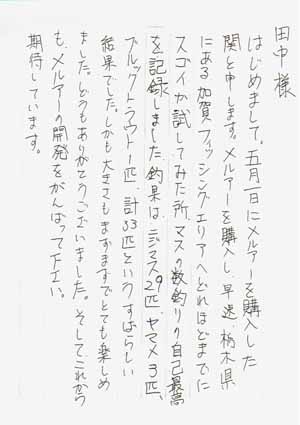 田中様
はじめまして。五月一日にメルアーを購入した
関と申します。メルアーを購入し、早速、栃木県
にある加賀フィッシングエリアへどれほどまでに
スゴイか試してみた所、マスの数釣りの自己最高
を記録しました。釣果は、ニジマス29匹、ヤマメ3匹、
ブルックトラウト1匹、計33匹というすばらしい
結果でした。しかも大きさもまずまずでとても楽しめ
ました。どうもありがとうございました。そしてこれから
も、メルアーの開発をがんばって下さい。
期待しています。